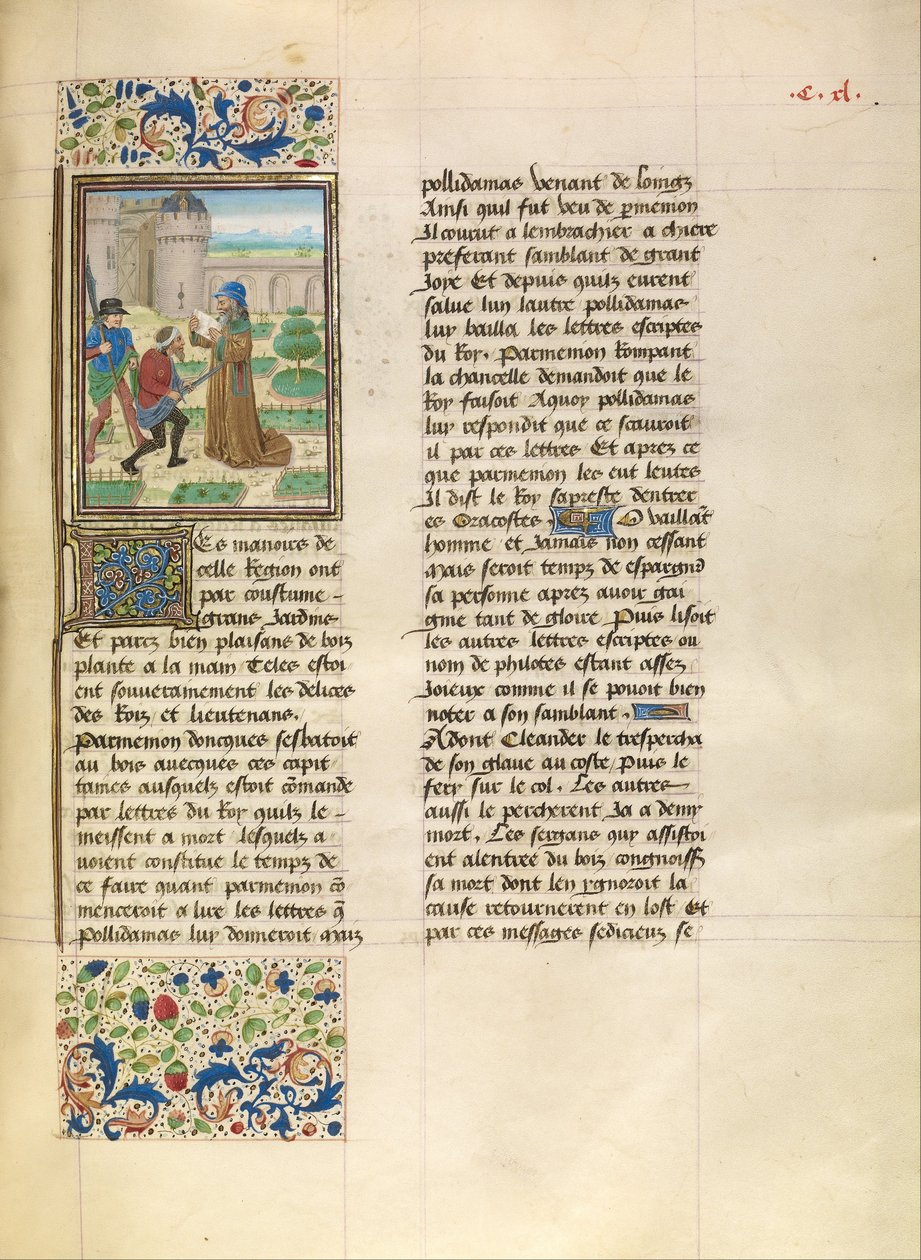 .C. xl.
Les manoirs de
celle Region ont
par coustume -
grans Jardins
Et parcz bien plaisans de bois
plante a la main Teles estoi
ent souverainement les delices
des Roiz et lieutenans.
Parmenion doncques sesbatoit
au bois avecques ces capit
taines ausquelz estoit cōmande
par lettres du Roy quilz le -
meissent a mort lesquelz a
voient constitue le temps de
ce faire quant parmenion cō
menceroit a lire les lettres q̄
Pollidamas luy donneroit Mais
pollidamas venant de loingz
Ainsi quil fut veu de p̄menion
Il courut a lembrachier a chiere
preferant samblant de grant
Joye Et depuis quilz eurent
salue lun lautre pollidamas
luy bailla les lettres escriptes
du Roy. Parmenion Rompant
la chancelle demandoit que le
Roy faisoit Aquoy pollidamas
luy respondit que ce scauroit
il par ces lettres Et aprez ce
que parmenion les eut leutes
Il dist le Roy sapreste dentrer
es Oracostes. O vaillāt
homme et Jamais non cessant
Mais seroit temps de espargnr̄
sa personne aprez avoir gai
gnie tant de gloire Puis lisoit
les autres lettres escriptes ou
nom de philotes estant assez
Joieux comme il se povoit bien
noter a son samblant.
Adont Cleander le trespercha
de son glave au coste, Puis le
fery sur le col. Les autres
aussi le percherent Ja a demy
mort. Les sergans quy assistoi
ent alentree du bois congnoiss̄
sa mort dont len ygnoroit la
cause retournerent en lost Et
par ces messages sedicieux se